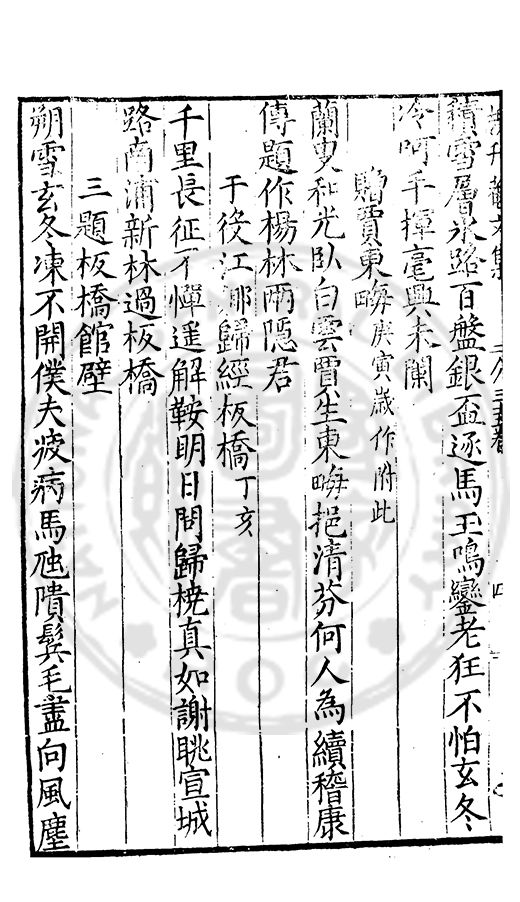 積雪層氷路百盤銀盃逐馬玉鳴鑾老狂不怕玄冬
冷呵手揮毫興未闌
贈賈東畮庚寅歲作附此
蘭叟和光臥白雲賈生東畮挹清芬何人為續稽康
傳題作楊林兩隱君
于役江鄉歸經板橋丁亥
千里長征不憚遥解鞍明日問歸橈真如謝眺宣城
路南浦新林過板橋
三題板橋館壁
朔雪玄冬凍不開僕夫疲病馬虺隤鬂毛盡向風塵